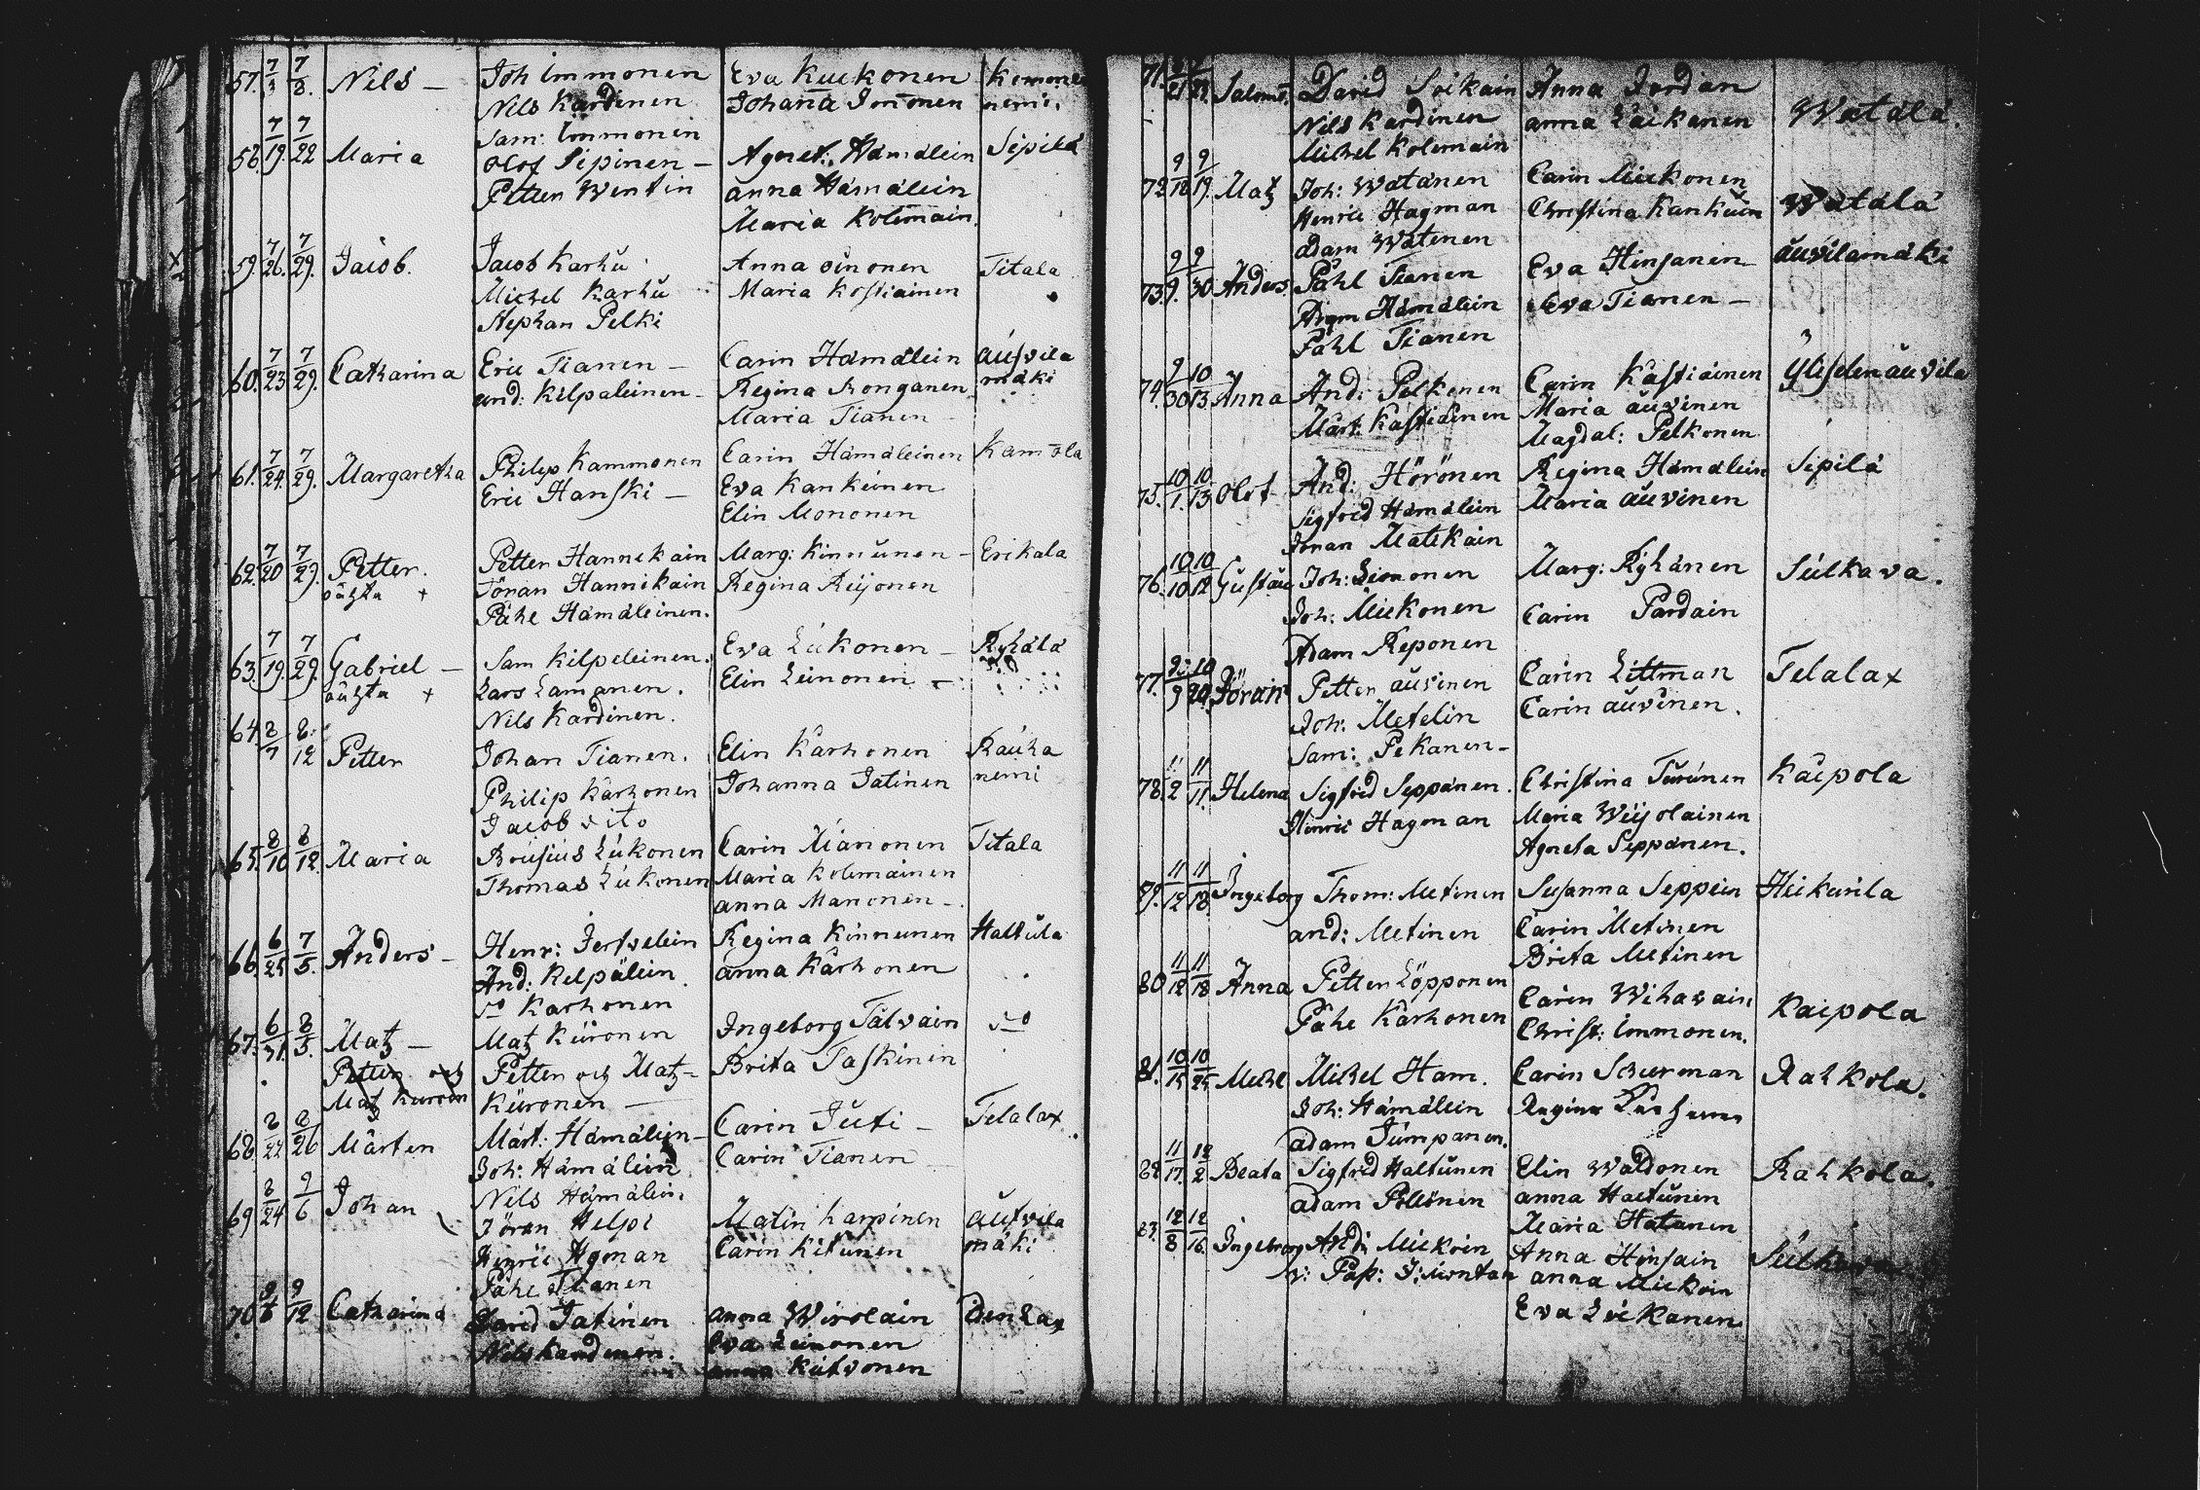 57. 7/3 7/8. Nils — Joh Immonen Eva Kuckonen
Nils Kardenen Johana Immonen nemi.
58. 7/19 7/22 Maria Sam: Immonen
Olof Sipinen — Agnet: Hämälein Sipilä
Petter Wentin anna Hämälein
Maria Kolemain
59. 7/26. 7/29. Jacob. Jacob Karhu Anna Oinonen Titala
Michel Karhu Maria Kostiainen
Stephan Pelki
60. 7/23 7/29. Catharina Eric Tianen — Carin Hämälein Aufvila
and: Kilpaleinen — Regina Ronganen mäki
Maria Tianen
61. 7/24. 7/29. Margaretha Philip Kammonen Carin Hämäleinen Kamola
Eric Hanski — Eva Kankeinen
Elin Mononen
62. 7/20 7/29. Petter. Petter Hannekain Marg: Kinnunen — Erikala
oächta + Jöran Hannikain Regina Reijonen
Påhl Hämäleinen.
63. 7/19. 7/29. Gabriel — Sam Kilpeleinen. Eva Leikonen — Ryhälä
oächta + Lars Lamanen. Elin Leinonen —
Nils Kardinen.
64. 8/7 8/12 Petter Johan Tianen. Elin Karhonen Rauha
Philip Karhonen Johanna Iatinen nemi
Jacob dito
65. 8/10 8/12. Maria Brusius Leikonen Carin Mänonen Titala
Thomas Leikonen Maria Kolemainen
anna Manonen —
66. 6/25 7/5. Anders — Henr: Jerfvelein Regina Kinnunen Haltula
And: Kelpälein. anna Karhonen
do Karhonen
67. 6/31. 8/5. Matz — Matz Kuronen Ingeborg Talvain do
Petter och Petter och Matz — Brita Taskinen
Matz Kuronen Kuronen —
68. 8/22 8/26 Mårten Märt: Hämälein — Carin Juti — Telalax
Joh: Hämälein Carin Tianen
69 8/24 9/6 Johan Nils Hämälein.
Jöran Helpi Malin harpinen Aufvila
Henric Hgman Carin Kitunen mäki
Påhl Tianen
70 9/6 9/12 Catharina David Iatinen anna Wirolain
Nils Kardenen. Eva Leinonen
anna Kutvonen
71. Salome. David Soikain Anna Jordan Watälä.
Nils Kardinen anna Laikanen
Michel Kolemain
72 9/18 9/19. Matz Joh: Watanen Carin Miekonen Watälä
Henric Hagman Christina Kankuin
Adam Watenen
73. 9/9. 9/30 Anders. Påhl Tianen Eva Hinsanen — auvilamäki
Hämälein Eva Tianen —
Påhl Tianen
74. 9/30 10/13 Anna And: Pelkonen Carin Kastiainen
Märt: Kastiainen Maria auvinen
Magdal: Pelkonen
75. 10/1. 10/13 Olof And: Hörönen Regina Hämälein Sipilä
Sigfred Hämälein Maria auvinen
Jöran Matikain
76. 10/10 10/12 Gustav Joh: Leinonen Marg: Ryhänen Sulkava.
Joh: Miekonen Carin Pardain
Adam Reponen
77. 9/9 10/20. Jöran Petter auvinen Carin Littman Telalax
Joh: Metelin Carin auvinen.
Sam: Pekanen —
78. 11/2 11/11. Helena Sigfred Seppänen. Christina Turunen Kaipola
Hinric Hagman Maria Wiijolainen
Agneta Seppänen.
79. 11/12 11/18. Ingeborg Thom: Metinen Susanna Seppein Heikurila
and: Metinen Carin Metinen
Brita Metinen
80 11/12 11/18 Anna Petter Löpponen Carin Wihavain Kaipola
Påhl Karhonen Christ: Immonen.
81. 10/15 10/25 Michl Michel Ham. Carin Schurman Rahkola.
Joh: Hämälein Regina
adam Jumpanen.
82 11/17. 12/2 Beata Sigfred Haltunen Elin Waldonen Rahkola.
adam Pellönen anna Haltunen
Maria Hatanen
83. 12/8 12/16. Ingeborg And: Miekoin Anna Hinsain Sulkava
v: Past: J: Montan anna Miekoin
Eva Leikanen